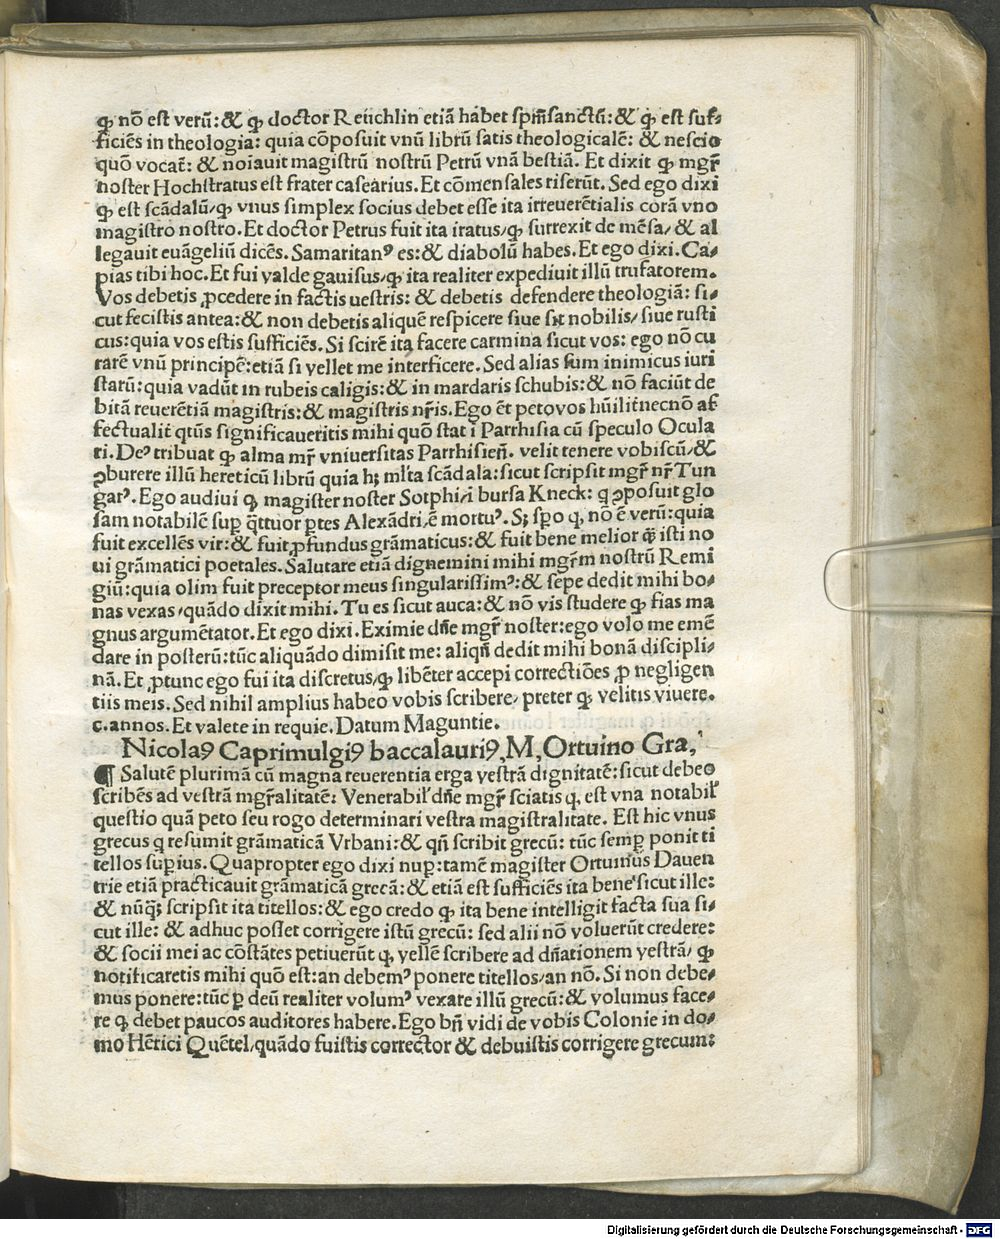 ꝙ nō est verū: & ꝙ doctor Reuchlin etiā habet spm̄sanctū: & ꝙ est suf⸗
ficiēs in theologia: quia cōposuit vnū librū satis theologicalē: & nescio
quō vocat̄: & noiauit magistrū nostrū Petrū vnā bestiā. Et dixit ꝙ mgr̄
noster Hochstratus est frater casearius. Et cōmensales riserūt. Sed ego dixi
ꝙ est scādalū/ꝙ vnus simplex socius debet esse ita irreuerētialis corā vno
magistro nostro. Et doctor Petrus fuit ita iratus/ꝙ surrexit de mēsa/ & al
legauit euāgeliū dicēs. Samaritanꝰ es: & diabolū habes. Et ego dixi. Ca⸗
pias tibi hoc. Et fui valde gauisus/ꝙ ita realiter expediuit illū trufatorem.
Vos debetis ꝓcedere in factis uestris: & debetis defendere theologiā: si⸗
cut fecistis antea: & non debetis aliquē respicere siue sit nobilis/ siue rusti
cus: quia vos estis sufficiēs. Si scirē ita facere carmina sicut vos: ego nō cu
rarē vnū principē: etiā si vellet me interficere. Sed alias sum inimicus iuri
starū: quia vadūt in rubeis caligis: & in mardaris schubis: & nō faciūt de
bitā reuerētiā magistris: & magistris nr̄is. Ego ēt peto vos hūilit̄ necnō af
fectualit̄ qt̄us significaueritis mihi quō stat ī Parrhisia cū speculo Ocula
ri. Deꝰ tribuat ꝙ alma mr̄ vniuersitas Parrhisien̄. velit tenere vobiscū/ &
ꝯburere illū hereticū librū quia hꝫ ml̄ta scādala: sicut scripsit mgr̄ nr̄ Tun
garꝰ. Ego audiui ꝙ magister noster Sotphi/ī bursa Kneck: q ꝯposuit glo
sam notabilē suꝑ q̄ttuor ꝑtes Alexādri/ē mortuꝰ. Sꝫ spo q, nō ē verū: quia
fuit excellēs vir: & fuit ꝓfundus grāmaticus: & fuit bene melior q̄ꝫ isti no
ui grāmatici poetales. Salutare etiā dignemini mihi mgr̄m nostrū Remi
giū: quia olim fuit preceptor meus singularissimꝰ: & sepe dedit mihi bo⸗
nas vexas/quādo dixit mihi. Tu es sicut auca: & nō vis studere ꝙ fias ma
gnus argumētator. Et ego dixi. Eximie dn̄e mgr̄ noster: ego volo me emē
dare in posterū: tūc aliquādo dimisit me: aliqn̄ dedit mihi bonā discipli⸗
nā. Et ꝓtunc ego fui ita discretus/ꝙ libēter accepi correctiōes ꝓ negligen
tiis meis. Sed nihil amplius habeo vobis scribere/ preter ꝙ velitis viuere.
c. annos. Et valete in requie. Datum Maguntie.
Nicolaꝰ Caprimulgiꝰ baccalauriꝰ, M, Ortuino Gra,
¶ Salutē plurimā cū magna reuerentia erga vestrā dignitatē: sicut debeo
scribēs ad vestrā mgr̄alitatē: Venerabil' dn̄e mgr̄ sciatis q, est vna notabil'
questio quā peto seu rogo determinari vestra magistralitate. Est hic vnus
grecus q resumit grāmaticā Vrbani: & qn̄ scribit grecū: tūc semꝑ ponit ti
tellos suꝑius. Quapropter ego dixi nuꝑ: tamē magister Ortuinus Dauen
trie etiā practicauit grāmaticā grecā: & etiā est sufficiēs ita bene sicut ille:
& nūq̄ꝫ scripsit ita titellos: & ego credo ꝙ ita bene intelligit facta sua si⸗
cut ille: & adhuc posset corrigere istū grecū: sed alii nō voluerūt credere:
& socii mei ac cōstātes petiuerūt q, vellē scribere ad dn̄ationem vestrā/ ꝙ
notificaretis mihi quō est: an debemꝰ ponere titellos/an nō. Si non debe⸗
mus ponere: tūc ꝑ deū realiter volumꝰ vexare illū grecū: & volumus face⸗
re ꝙ debet paucos auditores habere. Ego bn̄ vidi de vobis Colonie in do⸗
mo Hērici Quētel/quādo fuistis corrector & debuistis corrigere grecum:
Digitalisierung gefördert durch die Deutsche Forschungsgemeinschaft - DFG